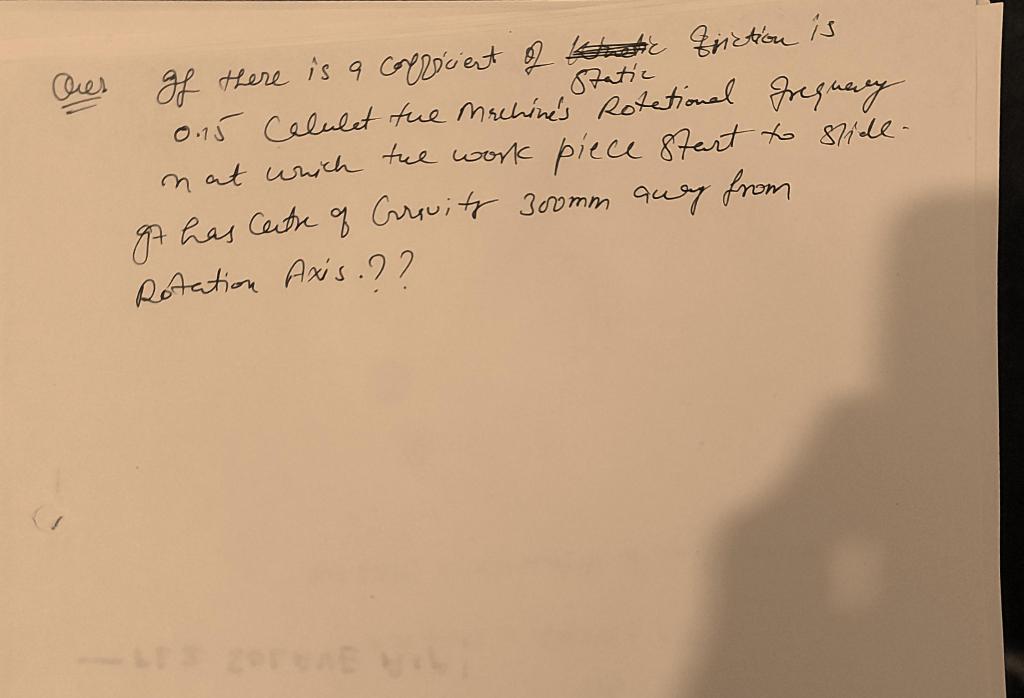 Ques If there is a cofficient of friction is
static
0.15 Calulet the Machine's Rotational frequency
n at which the work piece start to slide.
It has Centre of Gravity 300mm away from
Rotation Axis.??